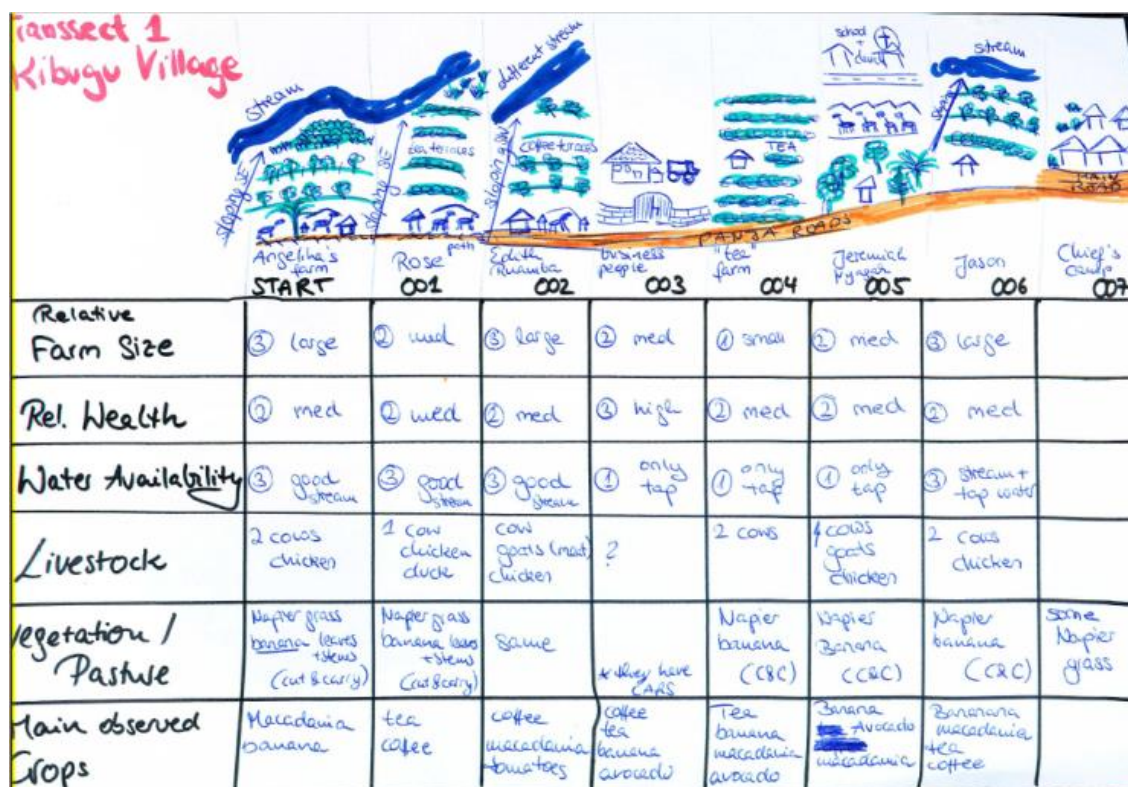 Transsect 1
Kibugu Village
stream
different stream
school + church
stream
sloping SE
sloping SE
tea terraces
sloping SW
coffee terraces
TEA
slope
path
PANJA ROADS
MAIN ROAD
Angelika's farm
Rose
Edith
business people
"tea" farm
Jeremiah
Jason
Chief's camp
START 001 002 003 004 005 006 007
Relative
Farm Size
③ large
② med
③ large
② med
① small
② med
③ large
Rel. Wealth
② med
② med
② med
③ high
② med
② med
② med
Water Availability
③ good stream
③ good stream
③ good stream
① only tap
① only tap
① only tap
③ stream + tap water
Livestock
2 cows
chicken
1 cow
chicken
duck
cow
goats (meat)
chicken
?
2 cows
cows
goats
chicken
2 cows
chicken
Vegetation /
Pasture
Napier grass
banana leaves
+ stems
(cut & carry)
Napier grass
banana leaves
+ stems
(cut & carry)
same
* they have
CARS
Napier
banana
(C&C)
Napier
Banana
(C&C)
Napier
banana
(C&C)
some
Napier
grass
Main observed
Crops
Macadamia
banana
tea
coffee
coffee
macadamia
tomatoes
coffee
tea
banana
avocado
Tea
banana
macadamia
avocado
Banana
Avocado
macadamia
Bananana
macadamia
tea
coffee